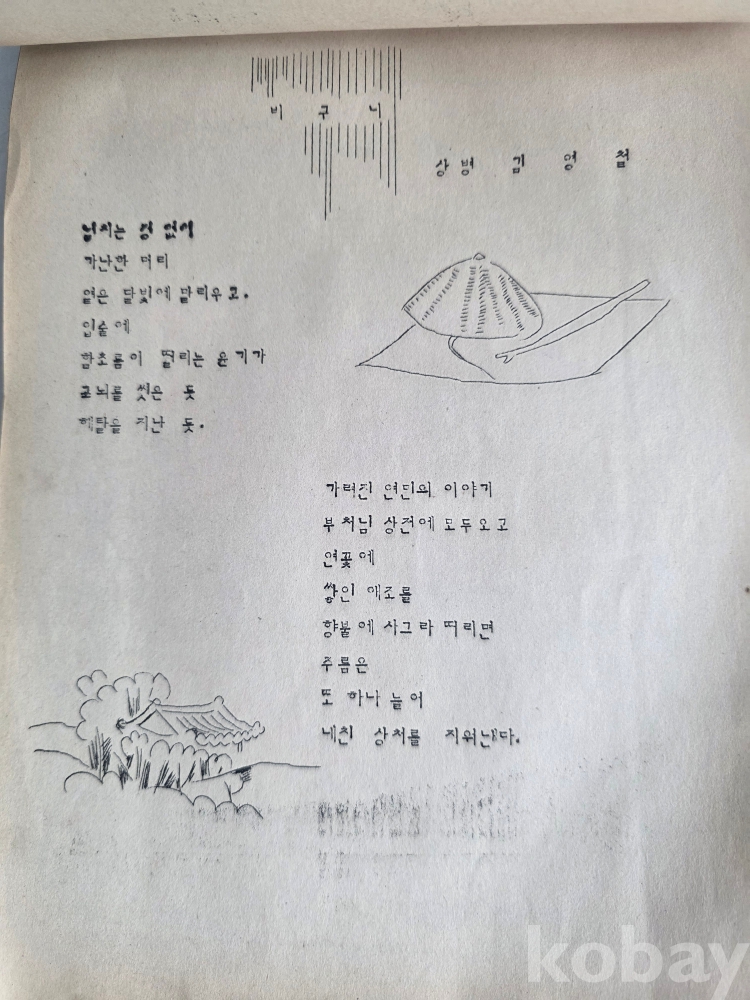 비구니
상병 김영철
넘치는 정 없이
가난한 머리
엷은 달빛에 말리우고.
입술에
함초롬이 떨리는 윤기가
고뇌를 씻은 듯
해탈을 지난 듯.
가려진 연민의 이야기
부처님 상전에 모두오고
연꽃에
쌓인 애조를
향불에 사그라 떠리면
주름은
또 하나 늘어
내친 상처를 지워낸다.
kobay